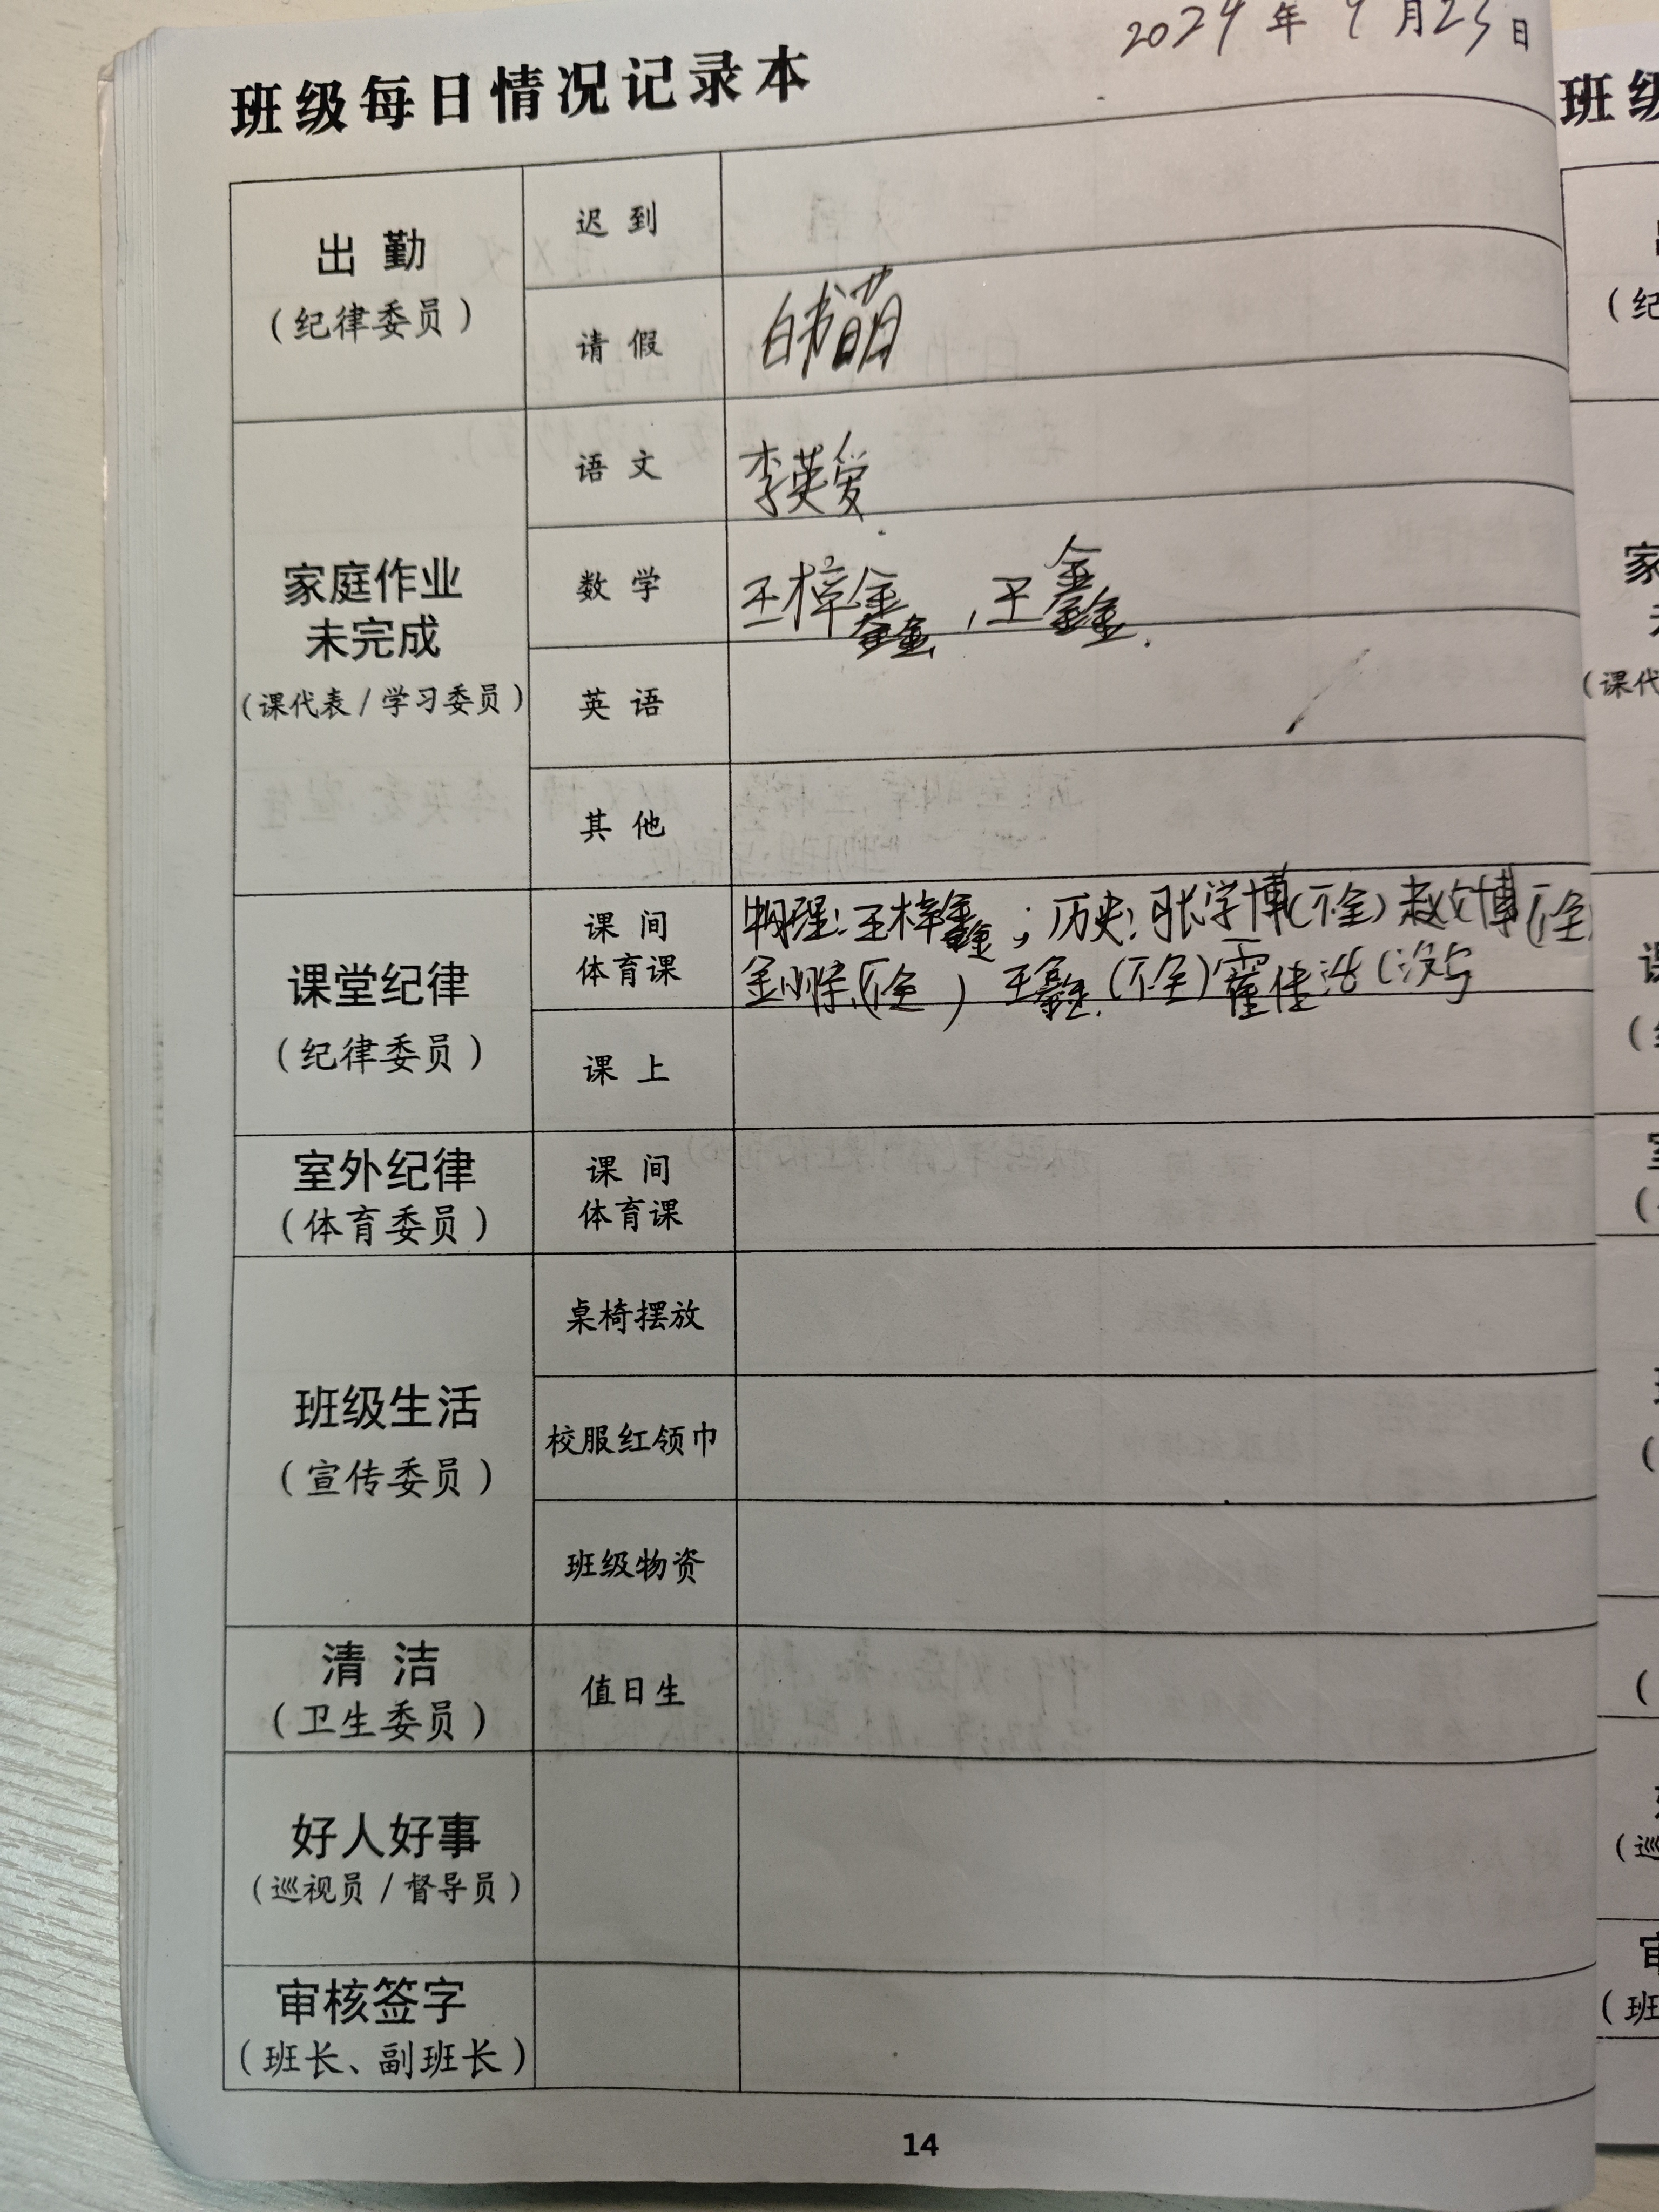 2024年9月23日
班级每日情况记录本
出勤
(纪律委员)
迟到
请假
白书萌
家庭作业
未完成
(课代表/学习委员)
语文
李英爱
数学
王梓鑫,王鑫.
英语
其他
课堂纪律
(纪律委员)
课间
体育课
物理:王梓鑫;历史:张学博(不全)赵文博(不全
金(不全)王鑫.(不全)霍佳浩(没写
课上
室外纪律
(体育委员)
课间
体育课
班级生活
(宣传委员)
桌椅摆放
校服红领巾
班级物资
清洁
(卫生委员)
值日生
好人好事
(巡视员/督导员)
审核签字
(班长、副班长)
14
班级
(纪
家
(课代